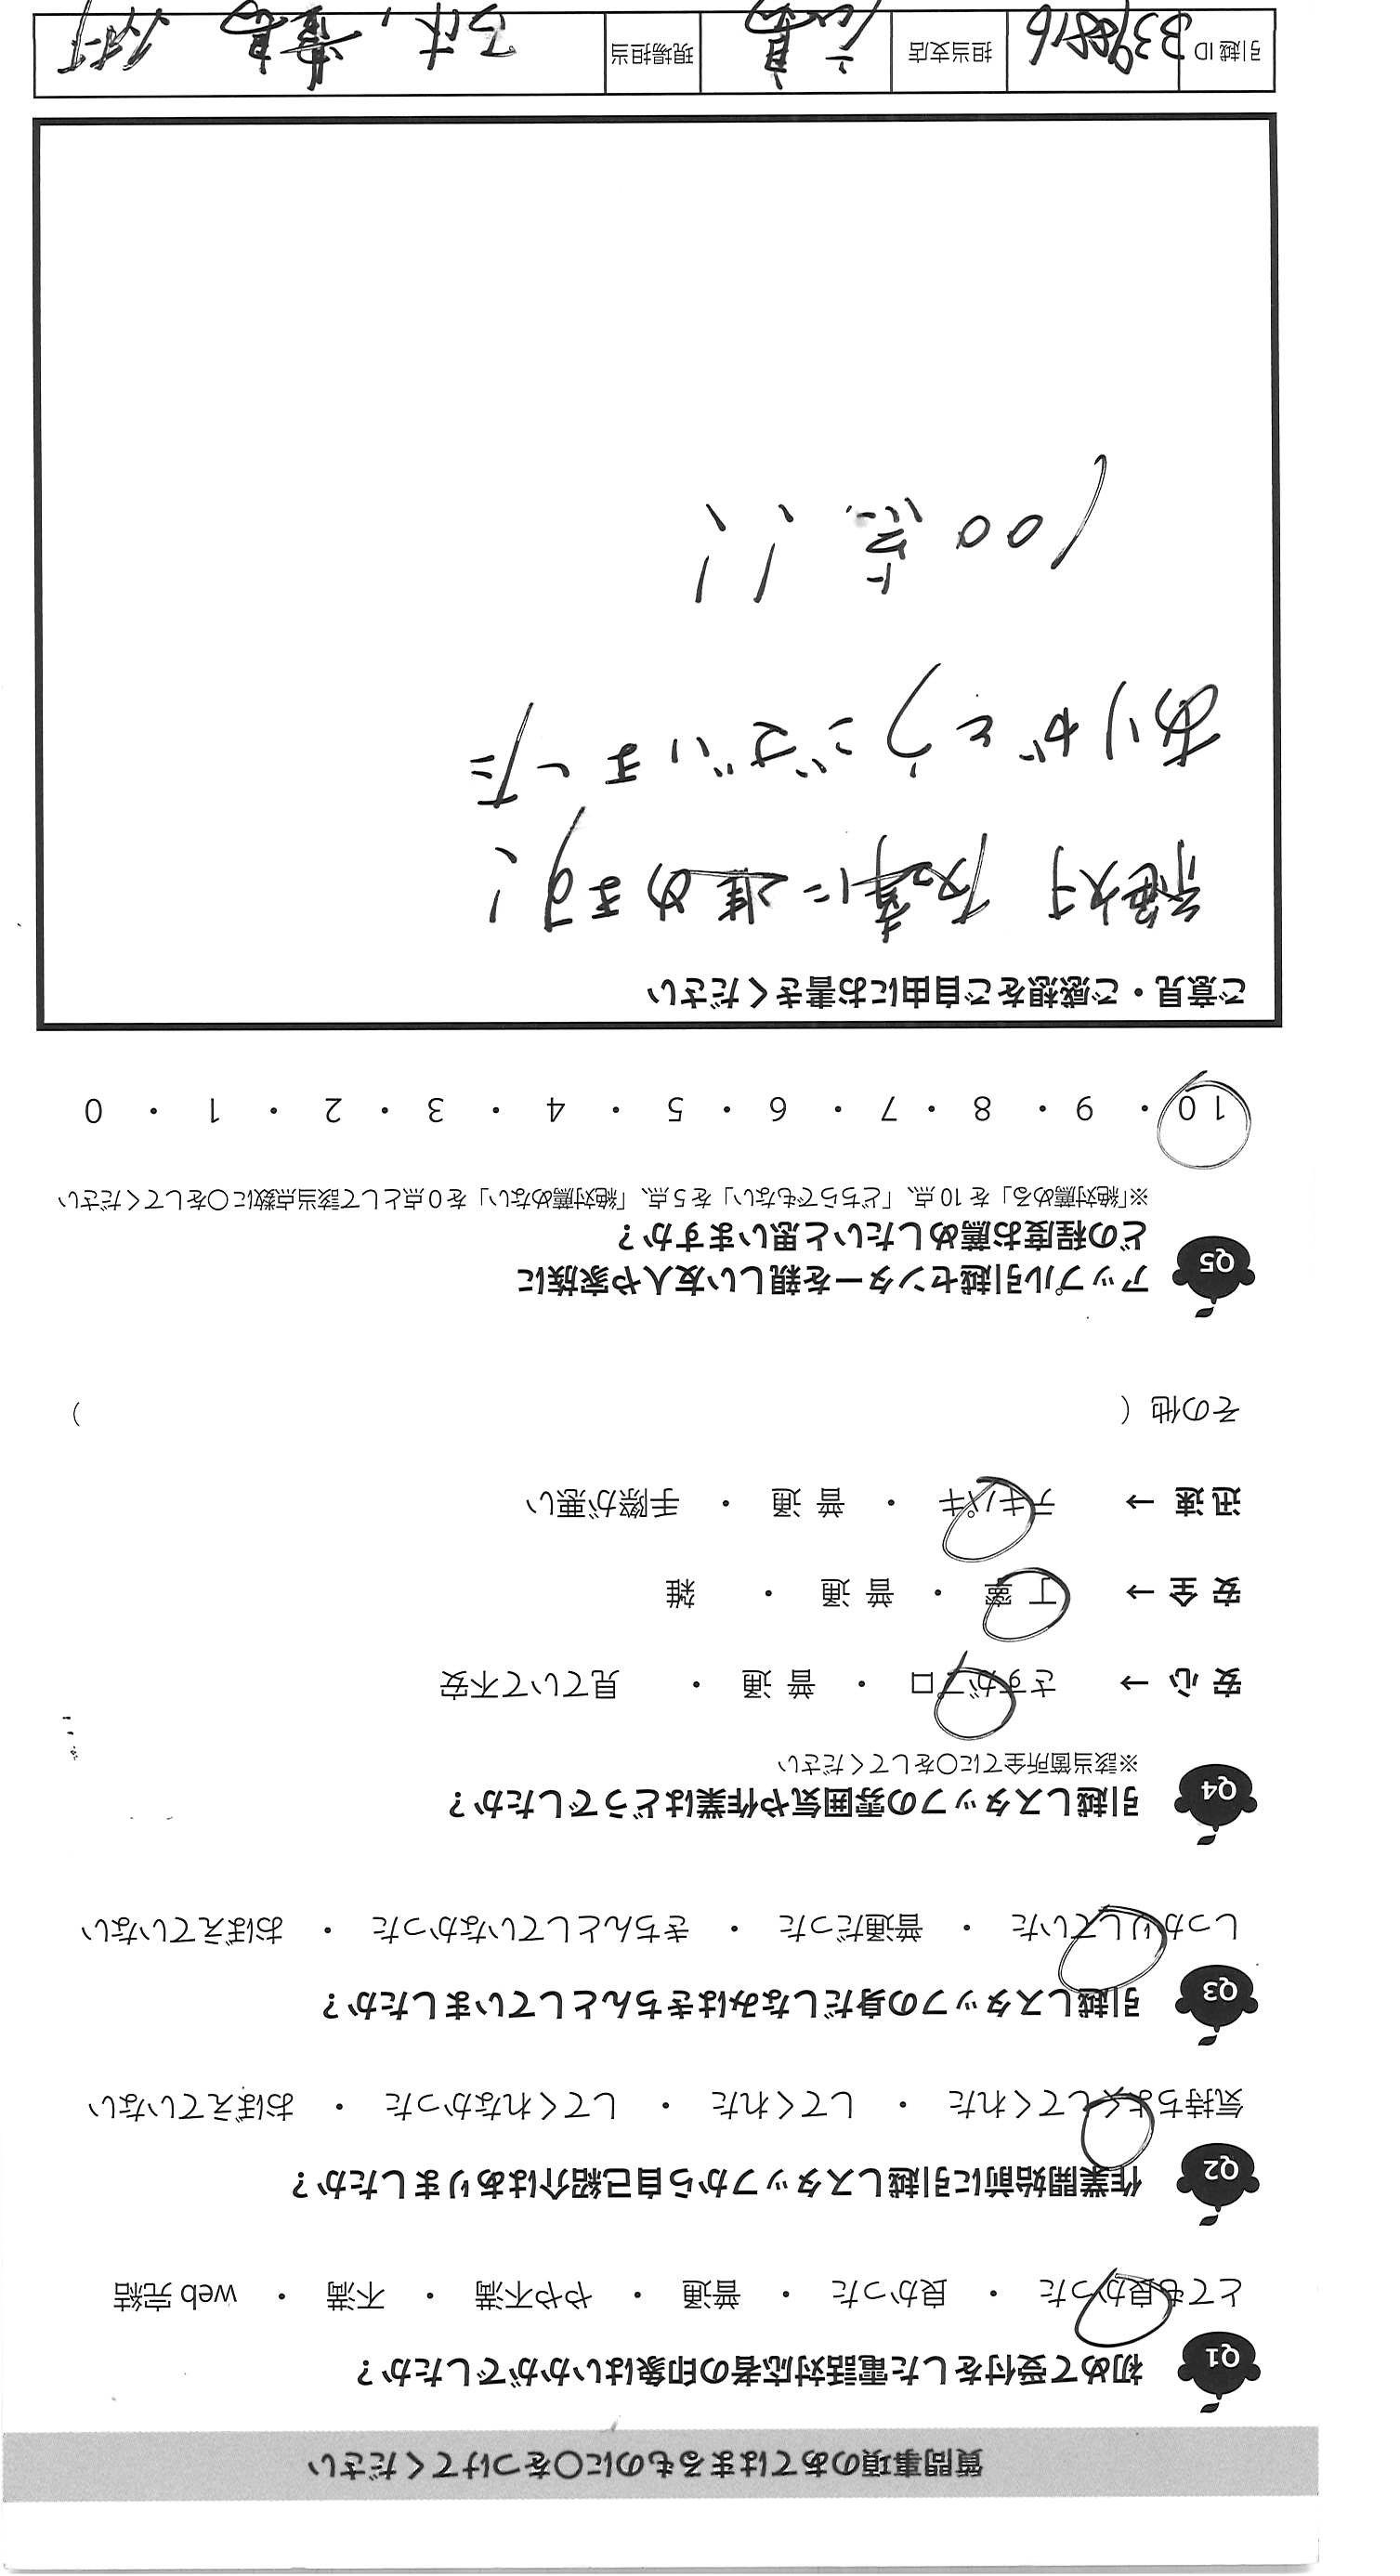 質問事項のあてはまるものに○をつけてください
Q1 初めて受付をした電話対応者の印象はいかがでしたか？
とても良かった ・ 良かった ・ 普通 ・ やや不満 ・ 不満 ・ web 完結
Q2 作業開始前に引越しスタッフから自己紹介はありましたか？
気持ちよくしてくれた ・ してくれた ・ してくれなかった ・ おぼえていない
Q3 引越しスタッフの身だしなみはきちんとしていましたか？
しっかりしていた ・ 普通だった ・ きちんとしていなかった ・ おぼえていない
Q4 引越しスタッフの雰囲気や作業はどうでしたか？
※該当箇所全てに○をしてください
安 心 → さすがプロ ・ 普 通 ・ 見ていて不安
安 全 → 丁 寧 ・ 普 通 ・ 雑
迅 速 → テキパキ ・ 普 通 ・ 手際が悪い
その他（ ）
Q5 アップル引越センターを親しい友人や家族に
どの程度お薦めしたいと思いますか？
※「絶対薦める」を 10 点、「どちらでもない」を 5 点、「絶対薦めない」を 0 点として該当点数に○をしてください
10 ・ 9 ・ 8 ・ 7 ・ 6 ・ 5 ・ 4 ・ 3 ・ 2 ・ 1 ・ 0
ご意見・ご感想をご自由にお書きください
絶対 友達に進めます!
ありがとうございました
100点!!
引越 ID 担当支店 現場担当